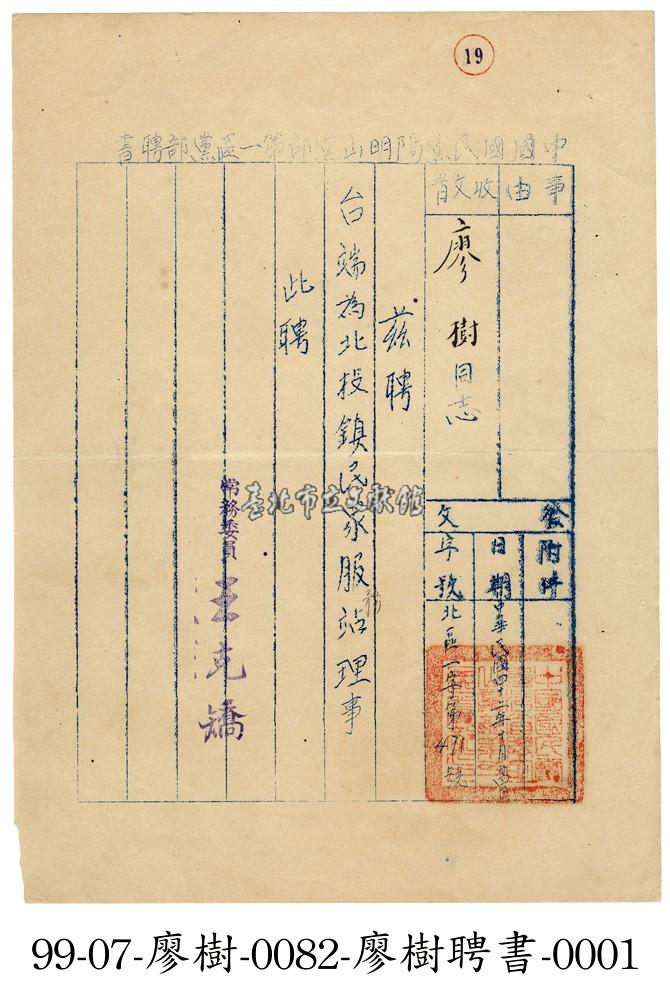 19
中國國民黨陽明山黨部第一區黨部聘書
事由
收文者
廖樹同志
附件
發文
日期
中華民國四十二年十月
字號
北區一字第471號
茲聘
台端為北投鎮民眾服務站理事
此聘
常務委員
王克矯
臺北市立文獻館
99-07-廖樹-0082-廖樹聘書-0001